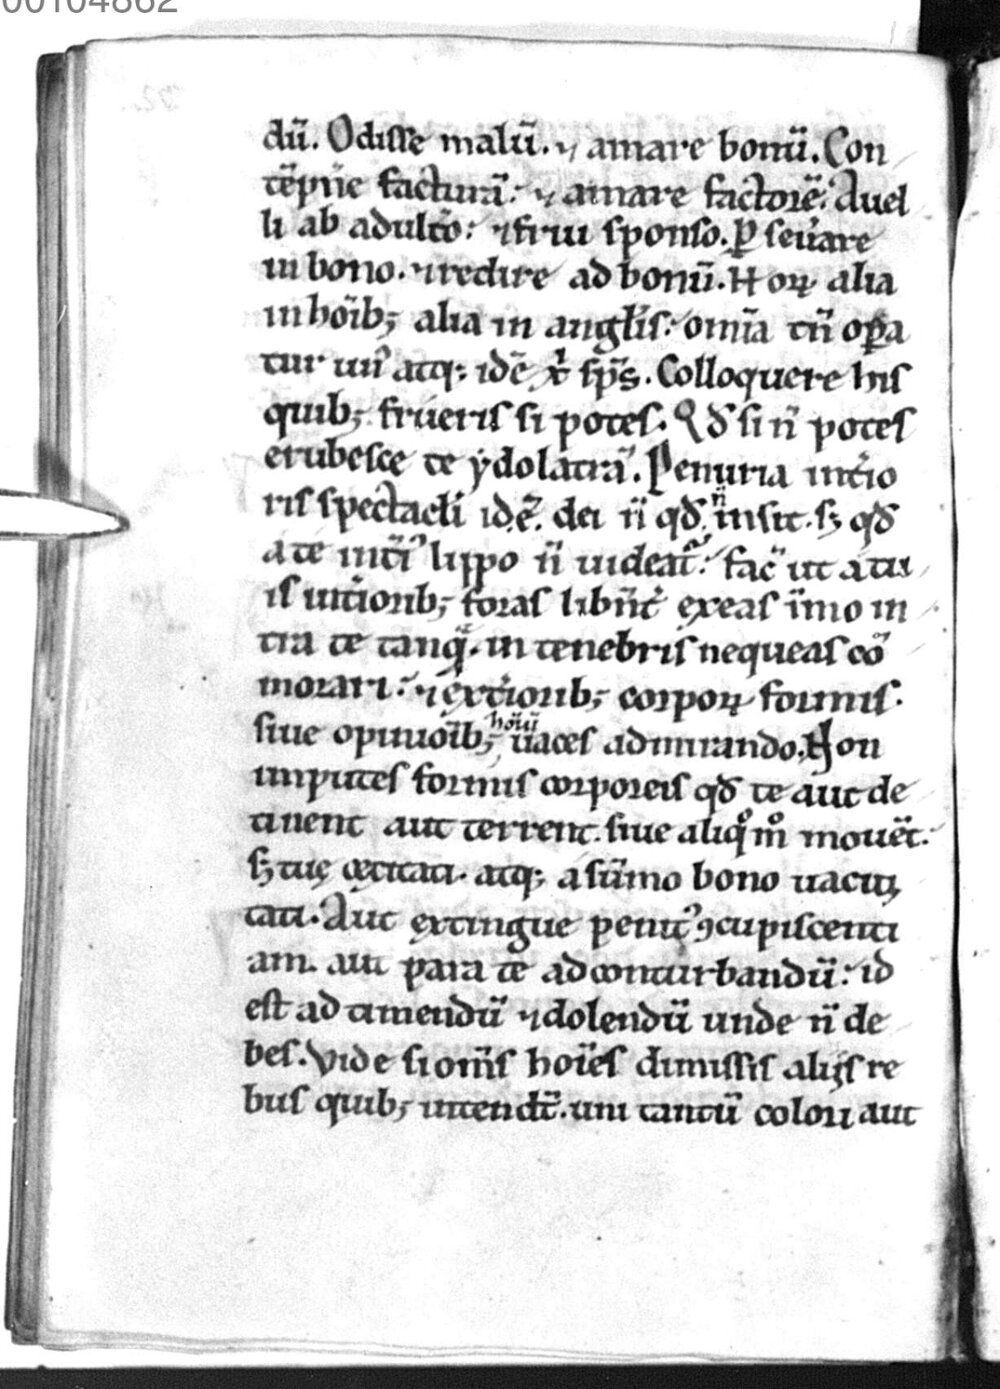 00104862
dū. Odisse malū. ⁊ amare bonū. Con
tēpn̄e facturā: ⁊ amare factorē. Auel
li ab adultō: ⁊ frui sponso. ꝑseūare
in bono. ⁊ redire ad bonū. Hoꝝ alia
in hōib; alia in angl̄is: om̄ia tn̄ oꝑa
tur un᾽ atq; idē xp̄i sp̄s. Colloquere his
quib; frueris si potes. Qđ si n̄ potes
erubesce te ydolatrā. Penuria int̄io
ris spectacli id.ē. dei n̄ qđ n̄ insit. sꝫ qđ
a te int̄i᾽ lippo n̄ uideat᾽: fac̄ ut a tu
is int̄iorib; foras libn̄t᾽ exeas īmo in
tra te tanqͣ. in tenebris nequeas cō
morari: ⁊ ext̄iorib; corpoꝝ formis.
siue opinōib; hōiū uaces admirando. Non
imputes formis corporeis qđ te aut de
tinent aut terrent. siue aliqͦ mͦ mouēt.
sꝫ tuę cęcitati. atq; a sūmo bono uacui
tati. Aut extingue penit᾽ ꝯcupiscenti
am. aut para te ad conturbandū: id
est ad timendū ⁊ dolendū unde n̄ de
bes. Vide si om̄s hoīes dimissis alijs re
bus quib; intendt̄. uni tantū colori aut